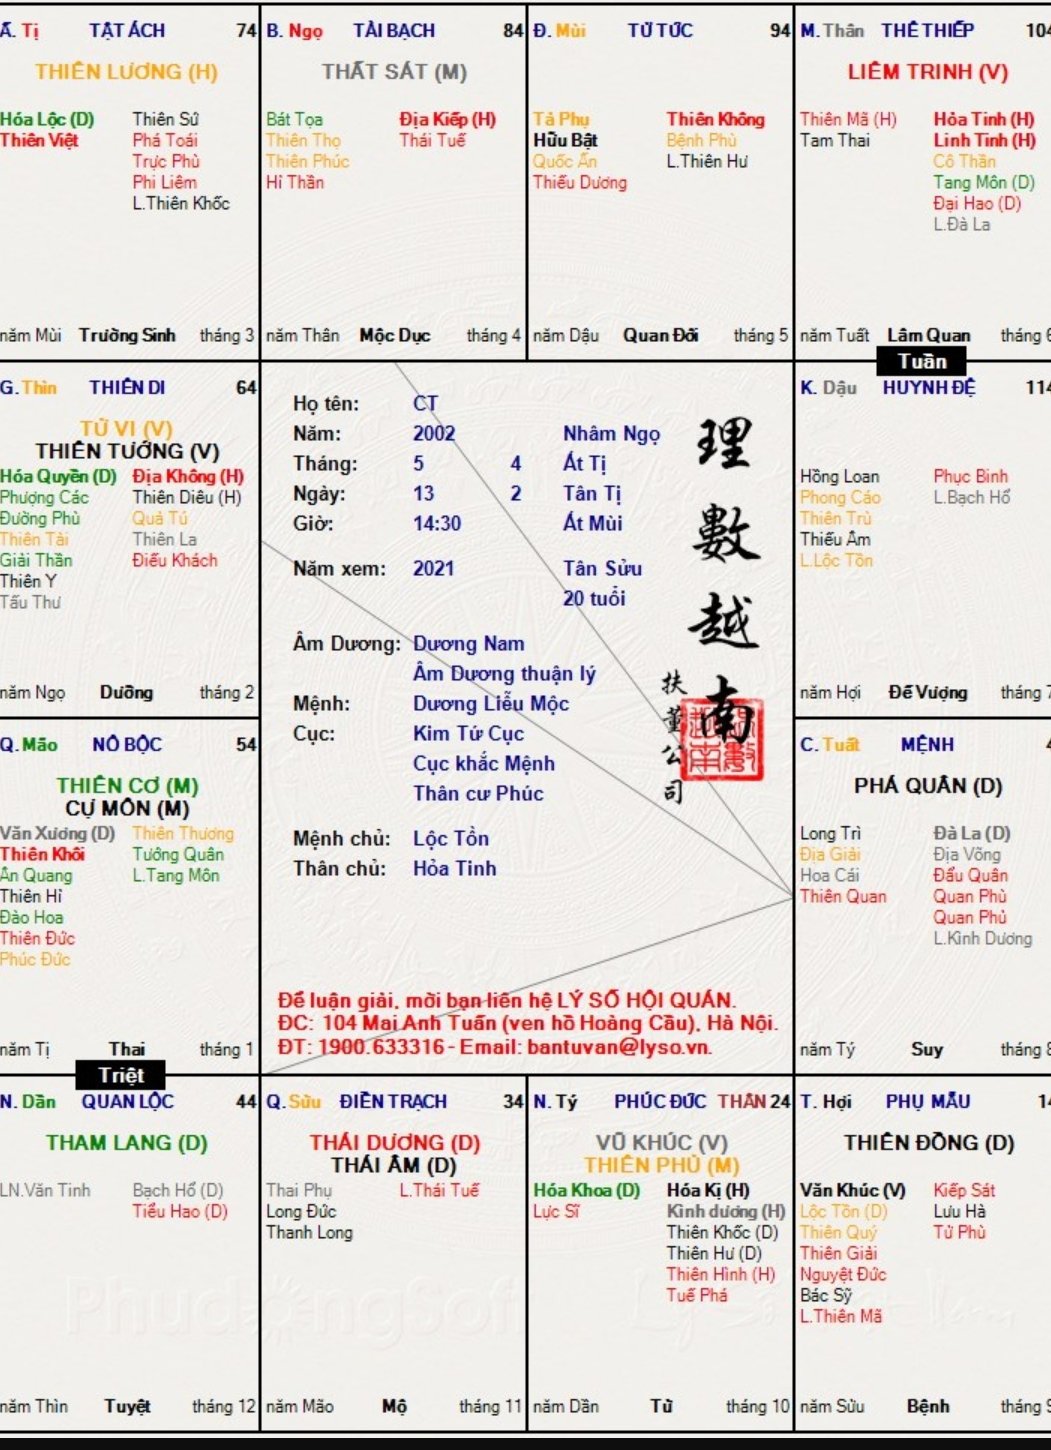 Ấ. Tị TẬT ÁCH 74
THIÊN LƯƠNG (H)
Hóa Lộc (D) Thiên Sứ
Thiên Việt Phá Toái
Trực Phù
Phi Liêm
L.Thiên Khốc
năm Mùi Trường Sinh tháng 3
B. Ngọ TÀI BẠCH 84
THẤT SÁT (M)
Bát Tọa Địa Kiếp (H)
Thiên Thọ Thái Tuế
Thiên Phúc
Hỉ Thần
năm Thân Mộc Dục tháng 4
Đ. Mùi TỬ TỨC 94
Tả Phụ Thiên Không
Hữu Bật Bệnh Phù
Quốc Ấn L.Thiên Hư
Thiếu Dương
năm Dậu Quan Đới tháng 5
M. Thân THÊ THIẾP 104
LIÊM TRINH (V)
Thiên Mã (H) Hỏa Tinh (H)
Tam Thai Linh Tinh (H)
Cô Thần
Tang Môn (D)
Đại Hao (D)
L.Đà La
năm Tuất Lâm Quan tháng 6
Tuần
G. Thìn THIÊN DI 64
TỬ VI (V)
THIÊN TƯỚNG (V)
Hóa Quyền (D) Địa Không (H)
Phượng Các Thiên Diêu (H)
Đường Phù Quả Tú
Thiên Tài Thiên La
Giải Thần Điếu Khách
Thiên Y
Tấu Thư
năm Ngọ Dưỡng tháng 2
Họ tên: CT
Năm: 2002 Nhâm Ngọ
Tháng: 5 4 Ất Tị
Ngày: 13 2 Tân Tị
Giờ: 14:30 Ất Mùi
Năm xem: 2021 Tân Sửu
20 tuổi
Âm Dương: Dương Nam
Âm Dương thuận lý
Mệnh: Dương Liễu Mộc
Cục: Kim Tứ Cục
Cục khắc Mệnh
Thân cư Phúc
Mệnh chủ: Lộc Tồn
Thân chủ: Hỏa Tinh
理數越南
扶董公司
Để luận giải, mời bạn liên hệ LÝ SỐ HỘI QUÁN.
ĐC: 104 Mai Anh Tuấn (ven hồ Hoàng Cầu), Hà Nội.
ĐT: 1900.633316 - Email: bantuvan@lyso.vn.
K. Dậu HUYNH ĐỆ 114
Hồng Loan Phục Binh
Phong Cáo L.Bạch Hổ
Thiên Trù
Thiếu Âm
L.Lộc Tồn
năm Hợi Đế Vượng tháng 7
Q. Mão NÔ BỘC 54
THIÊN CƠ (M)
CỰ MÔN (M)
Văn Xương (D) Thiên Thương
Thiên Khôi Tướng Quân
Ân Quang L.Tang Môn
Thiên Hỉ
Đào Hoa
Thiên Đức
Phúc Đức
năm Tị Thai tháng 1
Triệt
C. Tuất MỆNH 4
PHÁ QUÂN (D)
Long Trì Đà La (D)
Địa Giải Địa Võng
Hoa Cái Đẩu Quân
Thiên Quan Quan Phù
Quan Phủ
L.Kình Dương
năm Tý Suy tháng 8
N. Dần QUAN LỘC 44
THAM LANG (D)
LN.Văn Tinh Bạch Hổ (D)
Tiểu Hao (D)
năm Thìn Tuyệt tháng 12
Q. Sửu ĐIỀN TRẠCH 34
THÁI DƯƠNG (D)
THÁI ÂM (D)
Thai Phụ L.Thái Tuế
Long Đức
Thanh Long
năm Mão Mộ tháng 11
N. Tý PHÚC ĐỨC THÂN 24
VŨ KHÚC (V)
THIÊN PHỦ (M)
Hóa Khoa (D) Hóa Kị (H)
Lực Sĩ Kình dương (H)
Thiên Khốc (D)
Thiên Hư (D)
Thiên Hình (H)
Tuế Phá
năm Dần Tử tháng 10
T. Hợi PHỤ MẪU 14
THIÊN ĐỒNG (D)
Văn Khúc (V) Kiếp Sát
Lộc Tồn (D) Lưu Hà
Thiên Quý Tử Phù
Thiên Giải
Nguyệt Đức
Bác Sỹ
L.Thiên Mã
năm Sửu Bệnh tháng 9